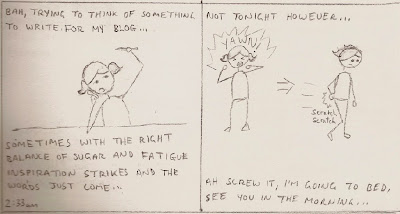 BAH, TRYING TO THINK OF SOMETHING
TO WRITE FOR MY BLOG...
SOMETIMES WITH THE RIGHT
BALANCE OF SUGAR AND FATIGUE
INSPIRATION STRIKES AND THE
WORDS JUST COME...
2:33am
NOT TONIGHT HOWEVER...
YAWN!
Scratch
Scratch
AH SCREW IT, I'M GOING TO BED,
SEE YOU IN THE MORNING...